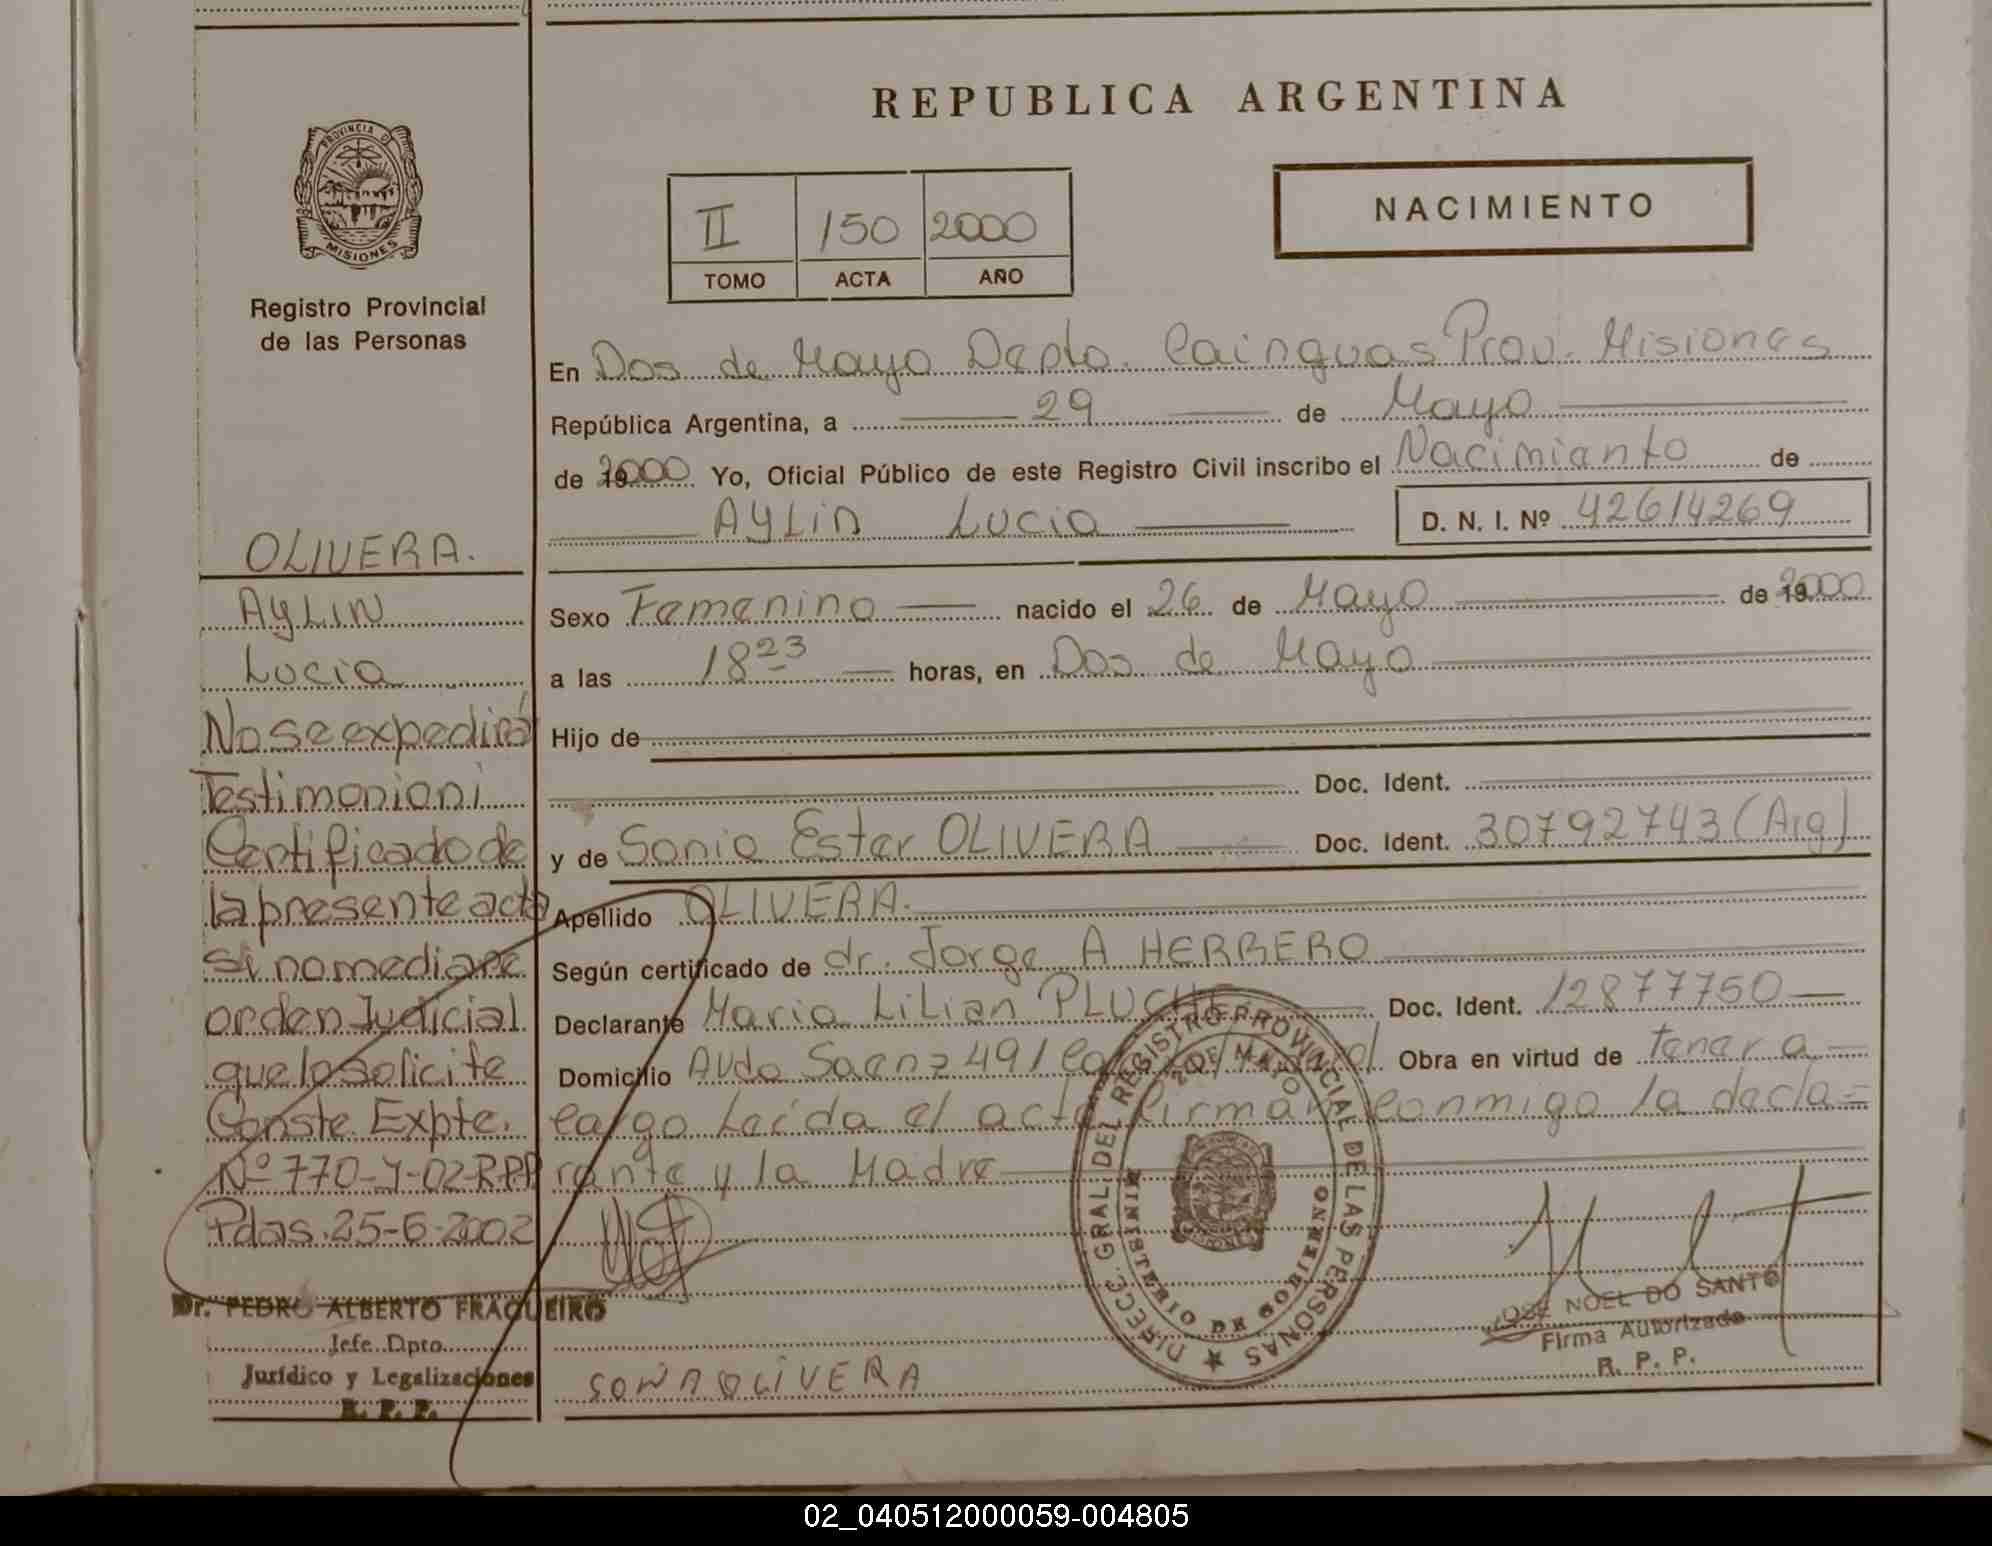 REPUBLICA ARGENTINA
PROVINCIA D
MISIONES
Registro Provincial
de las Personas
II 150 2000
TOMO ACTA AÑO
NACIMIENTO
OLIVERA.
AYLIN
Lucia
No se expedirá
Testimonio ni
Certificado de
la presente acta
si no mediare
orden Judicial
que lo solicite
Conste. Expte.
Nº 770-Y-02-R.P.P
Pdas. 25-6-2002
Dr. PEDRO ALBERTO FRAQUEIRO
Jefe Dpto.
Jurídico y Legalizaciones
R. P. P.
En Dos de Mayo Depto. Cainguas Prov. Misiones
República Argentina, a 29 de Mayo
de 2000 Yo, Oficial Público de este Registro Civil inscribo el Nacimianto de
AYLin Lucia D. N. I. Nº 42614269
Sexo Femenino nacido el 26 de Mayo de 2000
a las 18 23 horas, en Dos de Mayo
Hijo de
Doc. Ident.
y de Sonia Ester OLIVERA Doc. Ident. 30792743 (Arg)
Apellido OLIVERA.
Según certificado de dr. Jorge A HERRERO
Declarante Maria LiLian Doc. Ident. 12877750
Domicilio Avda Saenz 491 Obra en virtud de tener a
cargo Leída el acta firman conmigo la decla=
rante y la Madre
DIRECC. GRAL. DEL REGISTRO PROVINCIAL DE LAS PERSONAS
2 DE MAYO
MINISTERIO DE GOBIERNO
JOSE NOEL DO SANTO
Firma Autorizada
R. P. P.
SOÑA OLIVERA
02_040512000059-004805